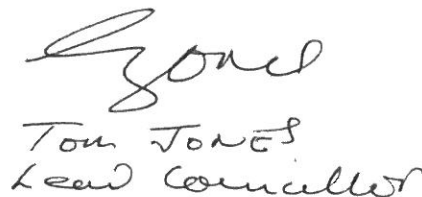 Jones
Tom JONES
Lead Councillor